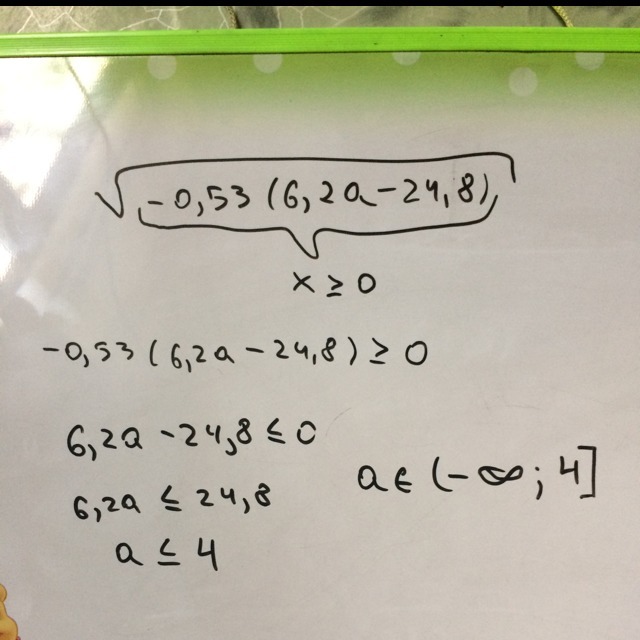 √-0,53 (6,2a-24,8)
x ≥ 0
-0,53 (6,2a-24,8) ≥ 0
6,2a -24,8 ≤ 0
6,2a ≤ 24,8
a ≤ 4
a ∈ (-∞; 4]